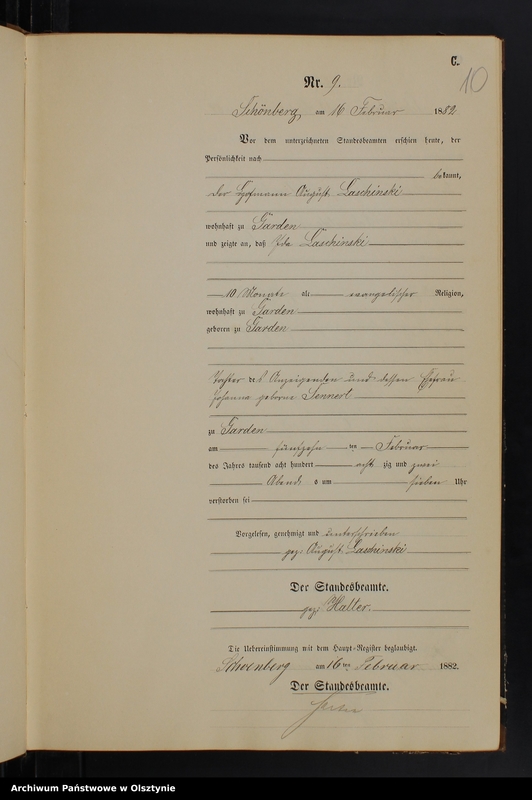 C.
10
Nr. 9.
Schönberg am 16 Februar 1882
Vor dem unterzeichneten Standesbeamten erschien heute, der
Persönlichkeit nach
bekannt,
der Hofmann August Laschinski
wohnhaft zu Garden
und zeigte an, daß Ida Laschinski
10 Monate alt evangelischer Religion,
wohnhaft zu Garden
geboren zu Garden
Tochter des Anzeigenden und dessen Ehefrau
Johanna geborne Sennert
zu Garden
am fünfzehn ten Februar
des Jahres tausend acht hundert acht zig und zwei
Abends um sieben Uhr
verstorben sei
Vorgelesen, genehmigt und unterschrieben
gez. August Laschinski
Der Standesbeamte.
gez. Halter.
Die Uebereinstimmung mit dem Haupt-Register beglaubigt.
Schoenberg am 16ten Februar 1882.
Der Standesbeamte.
Archiwum Państwowe w Olsztynie